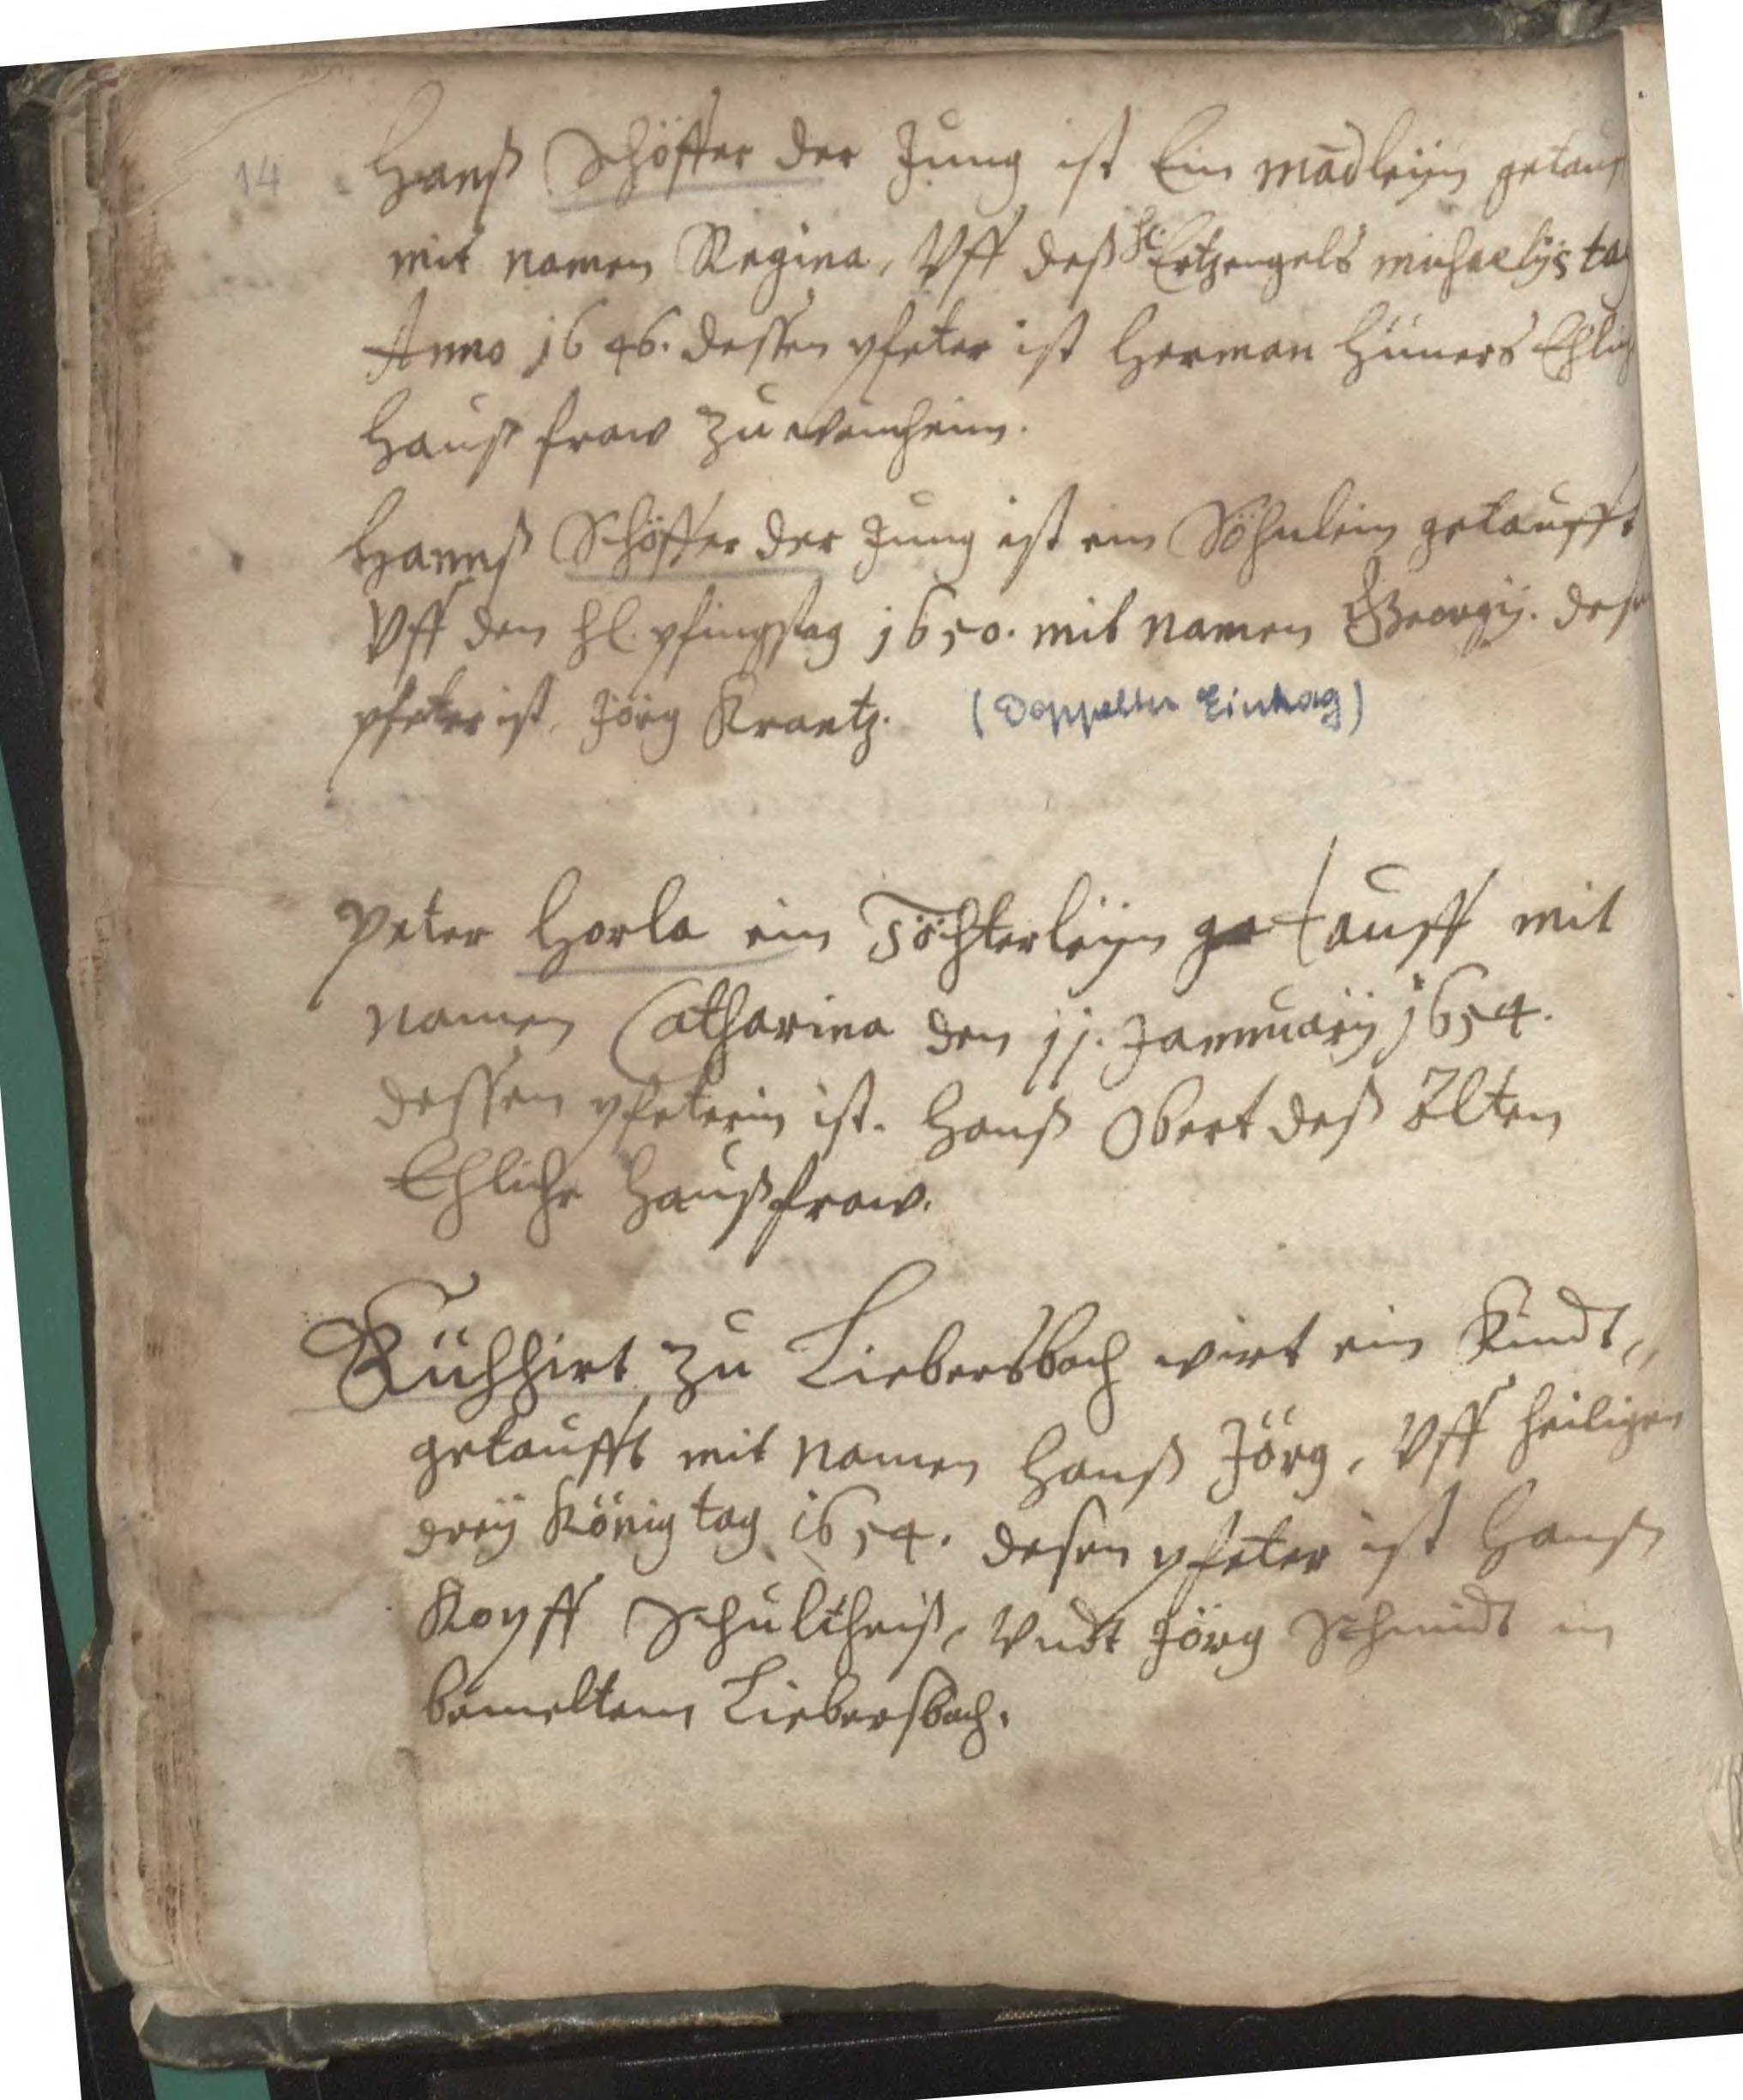 14 Hanß Schöffer der Jung ist Ein mädleÿn getauf
mit namen Regina, Vff deß hl. Ertzengels michaelÿs tag
Anno 1646. dessen pfeter ist Herman Hüners Ehlich
Hauß fraw zu weinheim.
Hannß Schöffer der Jung ist ein Söhnlein getaufft
Vff den hl. pfingstag 1650. mit namen Georgÿ. dess
pfeter ist Jörg Krantz. (Doppelter Eintrag)
Peter Horla ein Töchterleÿn getauff mit
namen Catharina den 11. Jannuarÿ 1654.
dessen pfeterin ist. Hanß Obert deß Elten
Ehliche Haußfraw.
Kühhirt zu Liebersbach wirt ein Kindt,,
getaufft mit namen Hanß Jörg, Vff heiligen
dreÿ König tag 1654. desen pfeter ist Hanß
Koyff Schultheiß, Vndt Jörg Schmidt in
bemeltem Liebersbach.